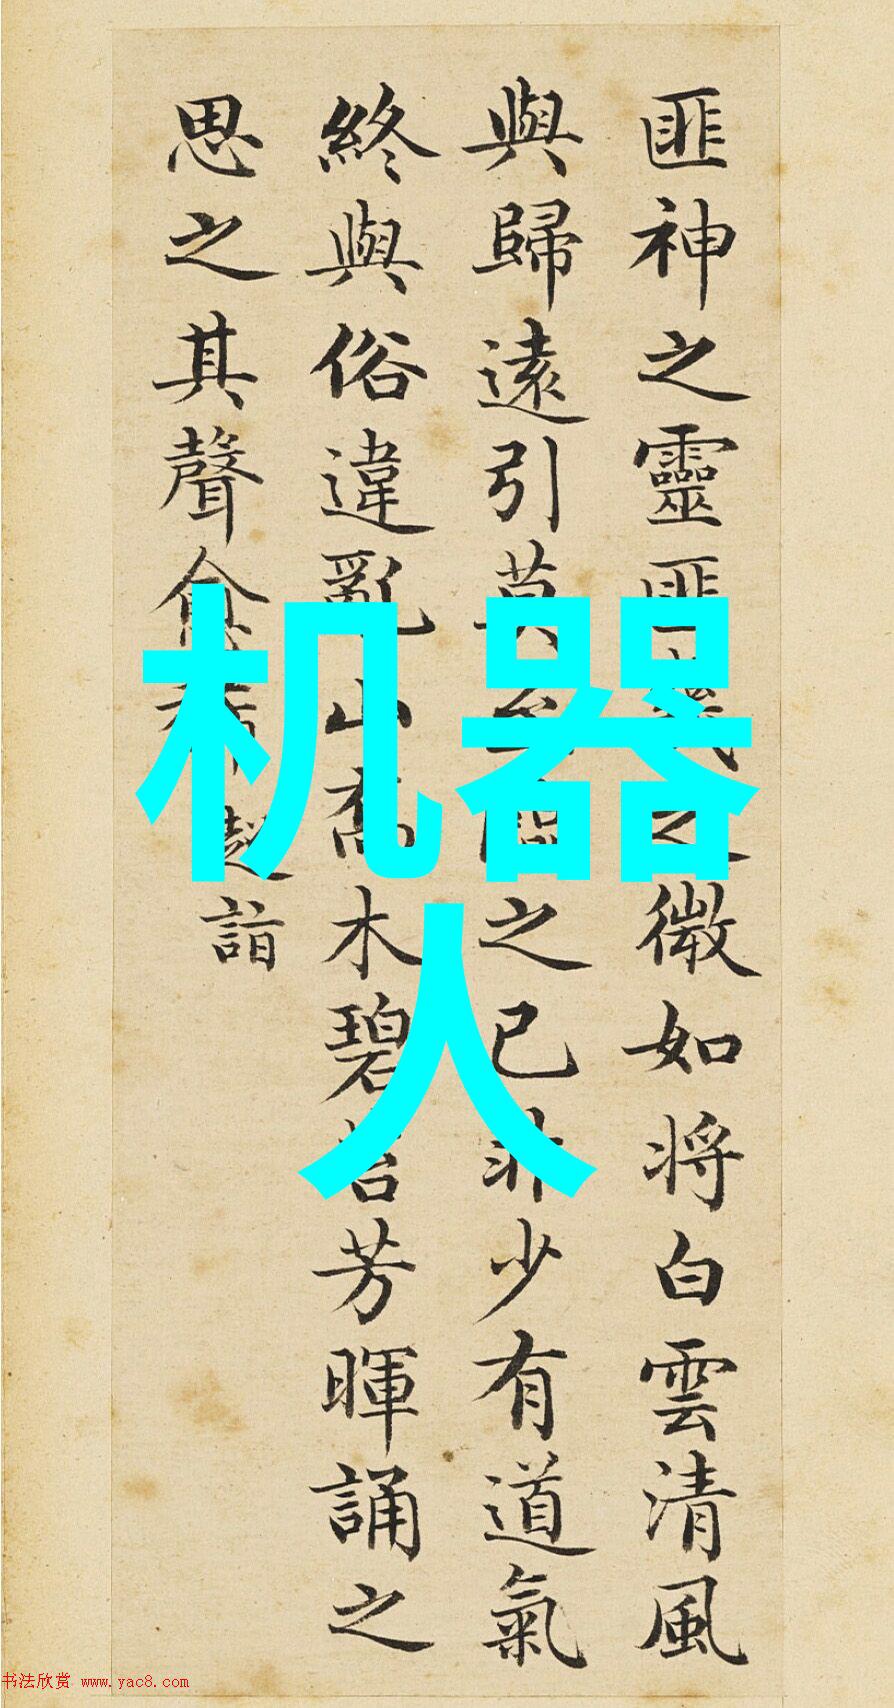 匪神之靈匪之微如將白雲清風
與歸遠引莫之已非少有道氣
終與俗違亂山喬木碧苔芳暉誦之
思之其聲愈希 超詣
机器
人
书法欣赏 www.yac8.com